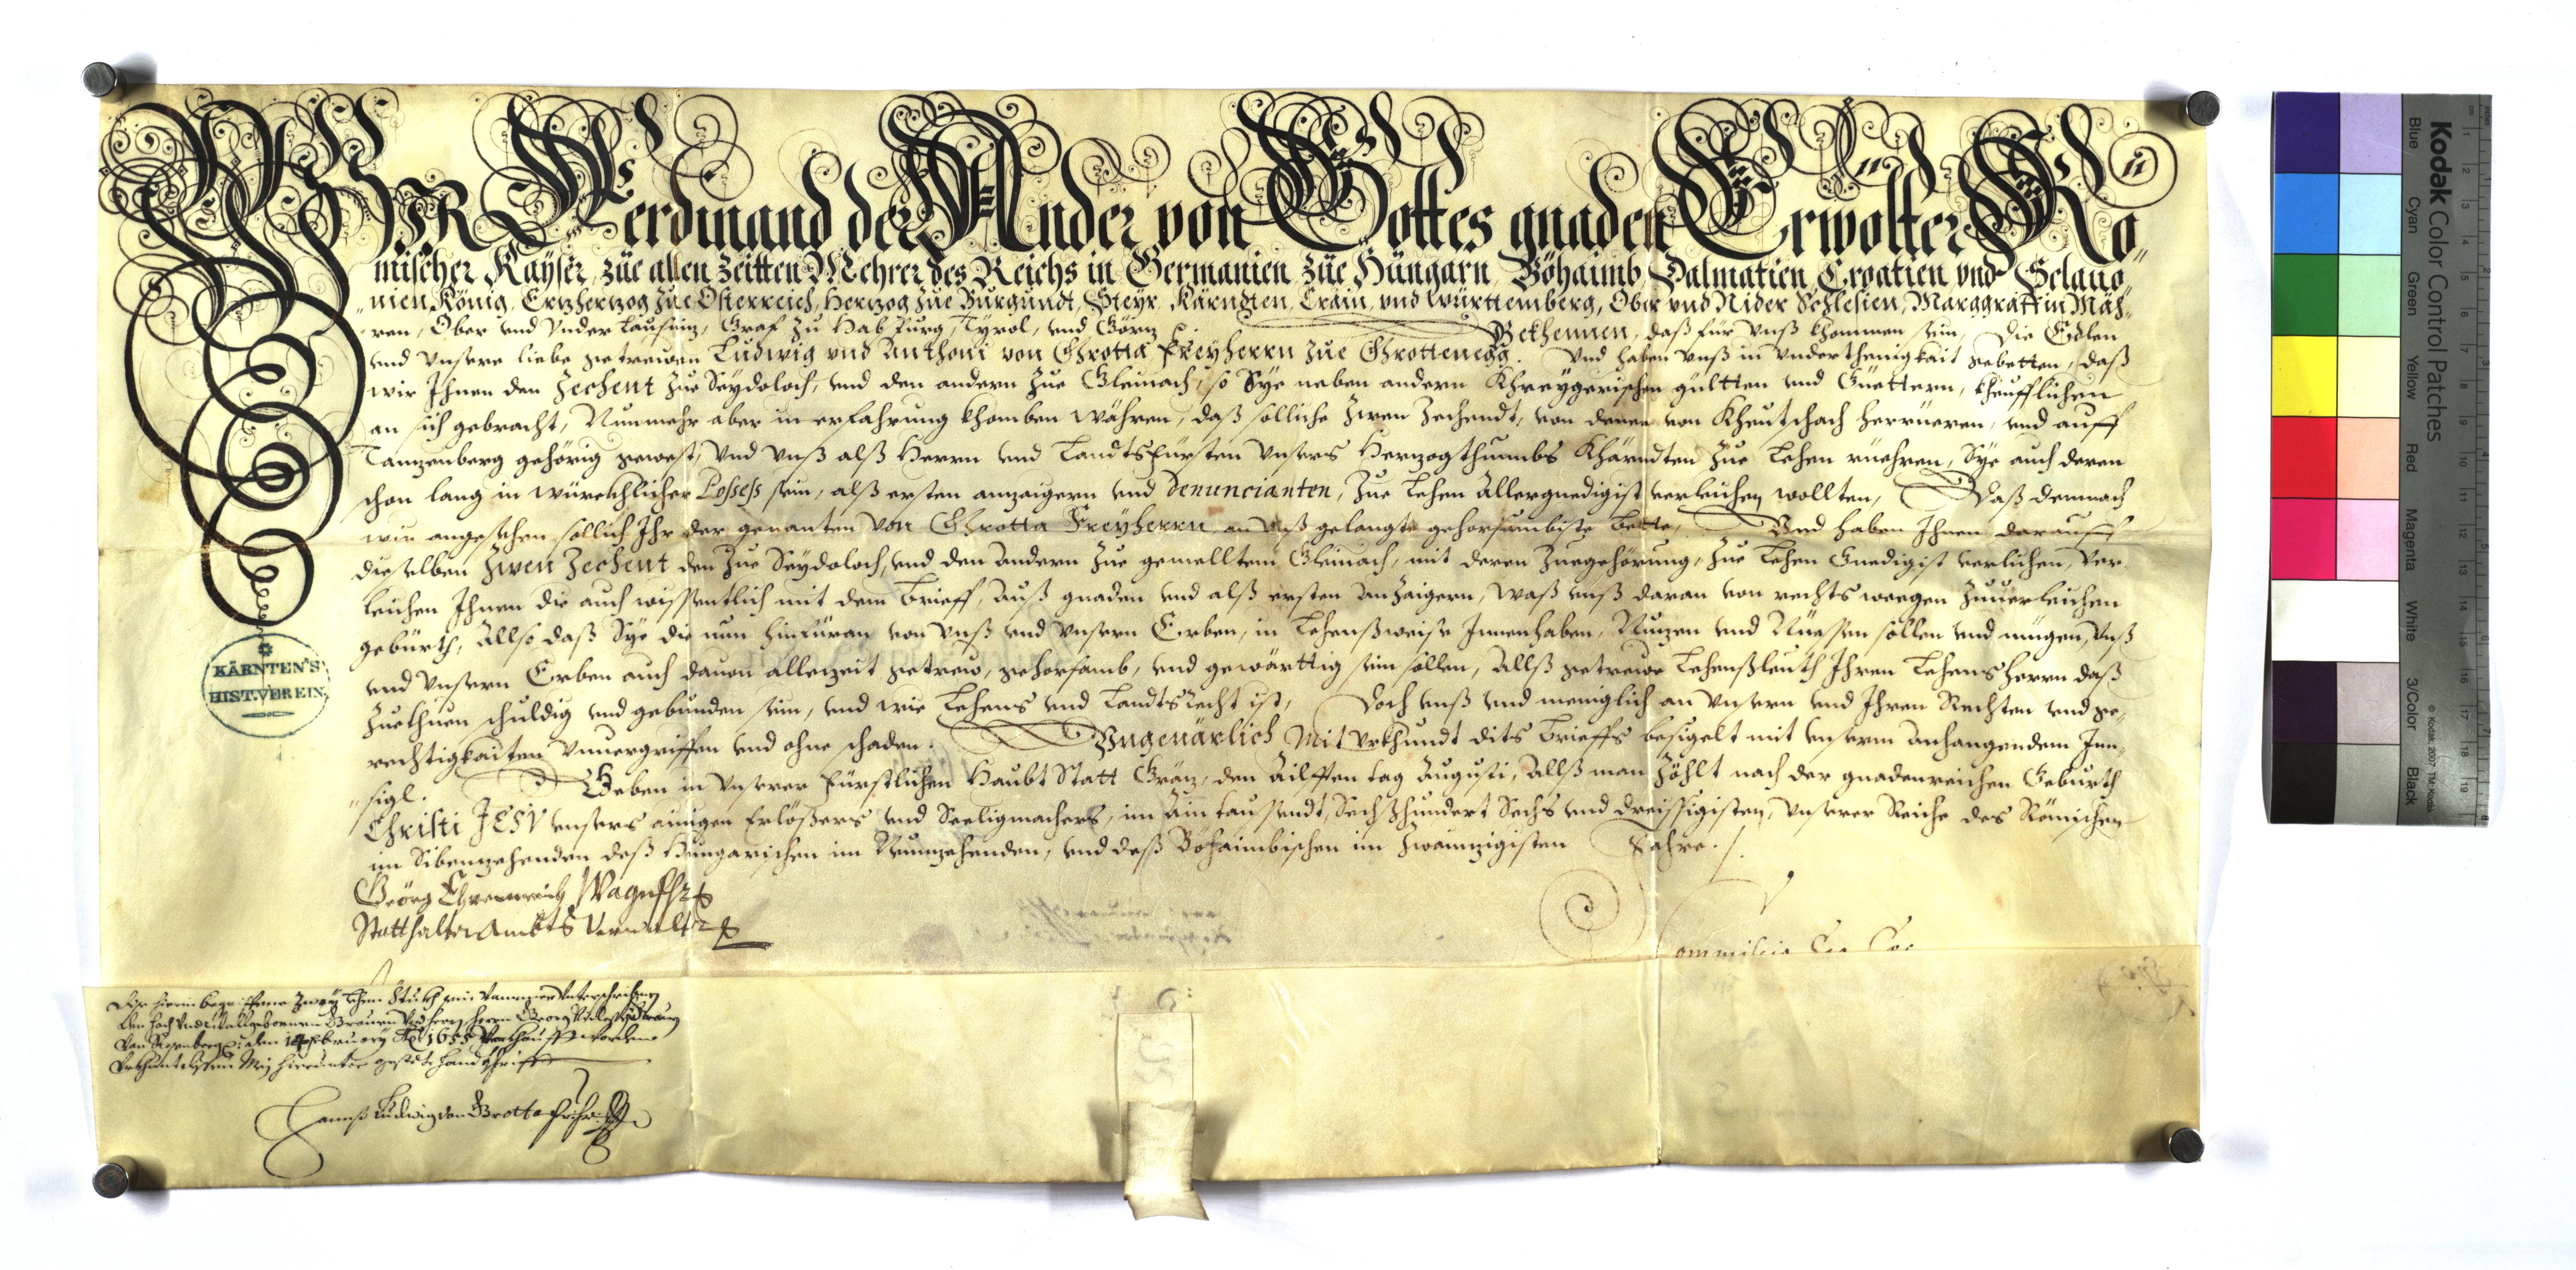 WIR Ferdinand der Ander von Gottes gnaden Erwölter Rö„
mischer Kayser, züe allen Zeitten Mehrer des Reichs in Germanien züe Hungarn, Böhaimb, Dalmatien, Croatien, vnd Sclauo„
„nien, König, Ertzhertzog züe Osterreich, Hertzog züe Burgundt, Steyr, Kärndten, Crain, vnd Württemberg, Ober vnd Nider Schlesien, Marggraff in Mäh„
ren, Ober vnd Vnder Laußnitz, Graf zu Habspurg, Tyrol, vnd Görtz Bekhennen, daß für Vnß khommen sein, die Edlen
vnd Vnsere liebe getrewen Ludwig vnd Anthoni von Ghrotta Freyherrn züe Ghrottenegg. Vnd haben Vnß in Vnderthenigkait gebetten, daß
wir Ihnen den Zechent züe Seydoloch, vnd den andern züe Gleinach, so Sye neben andern Khreygerischen gültten vnd Güettern, kheufflichen
an sich gebracht, Nunmehr aber in erfahrung khomben währen, daß solliche Zwen Zechendt, von denen von Kheutschach herrüeren, vnd auff
Tanzenberg gehörig gewest, vnd Vnß alß Herrn vnd Landtsfürsten Vnsers Herzogthumbs Khärndten züe Lehen rüehren, Sye auch deren
schon lang in würckhlicher Possess sein, alß ersten anzaigern vnd Denuncianten, züe Lehen Allergnedigist verleichen wollten, Daß demnach
wir angesehen sollich Ihr der genanten von Ghrotta Freyherrn an Vnß gelangte gehorsambiste bette, Vnd haben Ihnen darauff
dieselben Zwen Zechent den züe Seydoloch, vnd den Andern züe gemelltem Gleinach, mit deren Zuegehörung, züe Lehen Gnedigist verlichen, Ver
leichen Ihnen die auch wissentlich mit dem Brieff, Auß gnaden vnd alß ersten Anzaigern, waß Vnß daran von rechts weegen Zuuerleichen
gebürth, Allso daß Sye die nun hinfüran von Vnß vnd Vnsern Erben, in Lehensweise Innenhaben, Nutzen vnd Nüessen sollen vnd mügen, Vnß
vnd Vnsern Erben auch dauon allezeit getrew, gehorsamb, vnd gewärttig sein sollen, Allß getrewe Lehensleuth Ihren Lehensherrn daß
Zuethuen schuldig vnd gebunden sein, vnd wie Lehens vnd Landtsrecht ist, Doch Vnß vnd meniglich an Vnsern vnd Ihren Rechten vnd ge„
rechtigkaiten Vnuergriffen vnd ohne schaden. Vngeuärlich Mit Vrkhundt dits Brieffs besigelt mit Vnserm Anhangendem Inn„
„sigl. Geben in Vnserer Fürstlichen Haubt Statt Grätz, den Ailfften tag Augusti, Allß man Zöhlt nach der gnadenreichen Geburth
Christi JESV Vnsers ainigen Erlößers vnd Seeligmachers, im Ain tausendt, Sechßhundert Sechs vnd dreissigisten, Vnserer Reiche des Römischen
im Sibenzehenden deß Hungarischen im Neunzehenden, vnd deß Böhaimbischen im Zwaintzigisten Jahre.
Geörg Ehrenreich
Statthalter Ambts Verwalter
Commissio
KÄRNTEN'S
HIST. VEREIN
Georg
Von Rosenberg: den February Ao 1655 verkhaufft worden
hierunter handtschrifft
Hannß Ludwig von Grotta
Kodak Color Control Patches
© Kodak, 2007 TM: Kodak
Blue Cyan Green Yellow Red Magenta White 3/Color Black
cm 1 2 3 4 5 6 7 8 9 10 11 12 13 14 15 16 17 18 19
inches 1 2 3 4 5 6 7 8